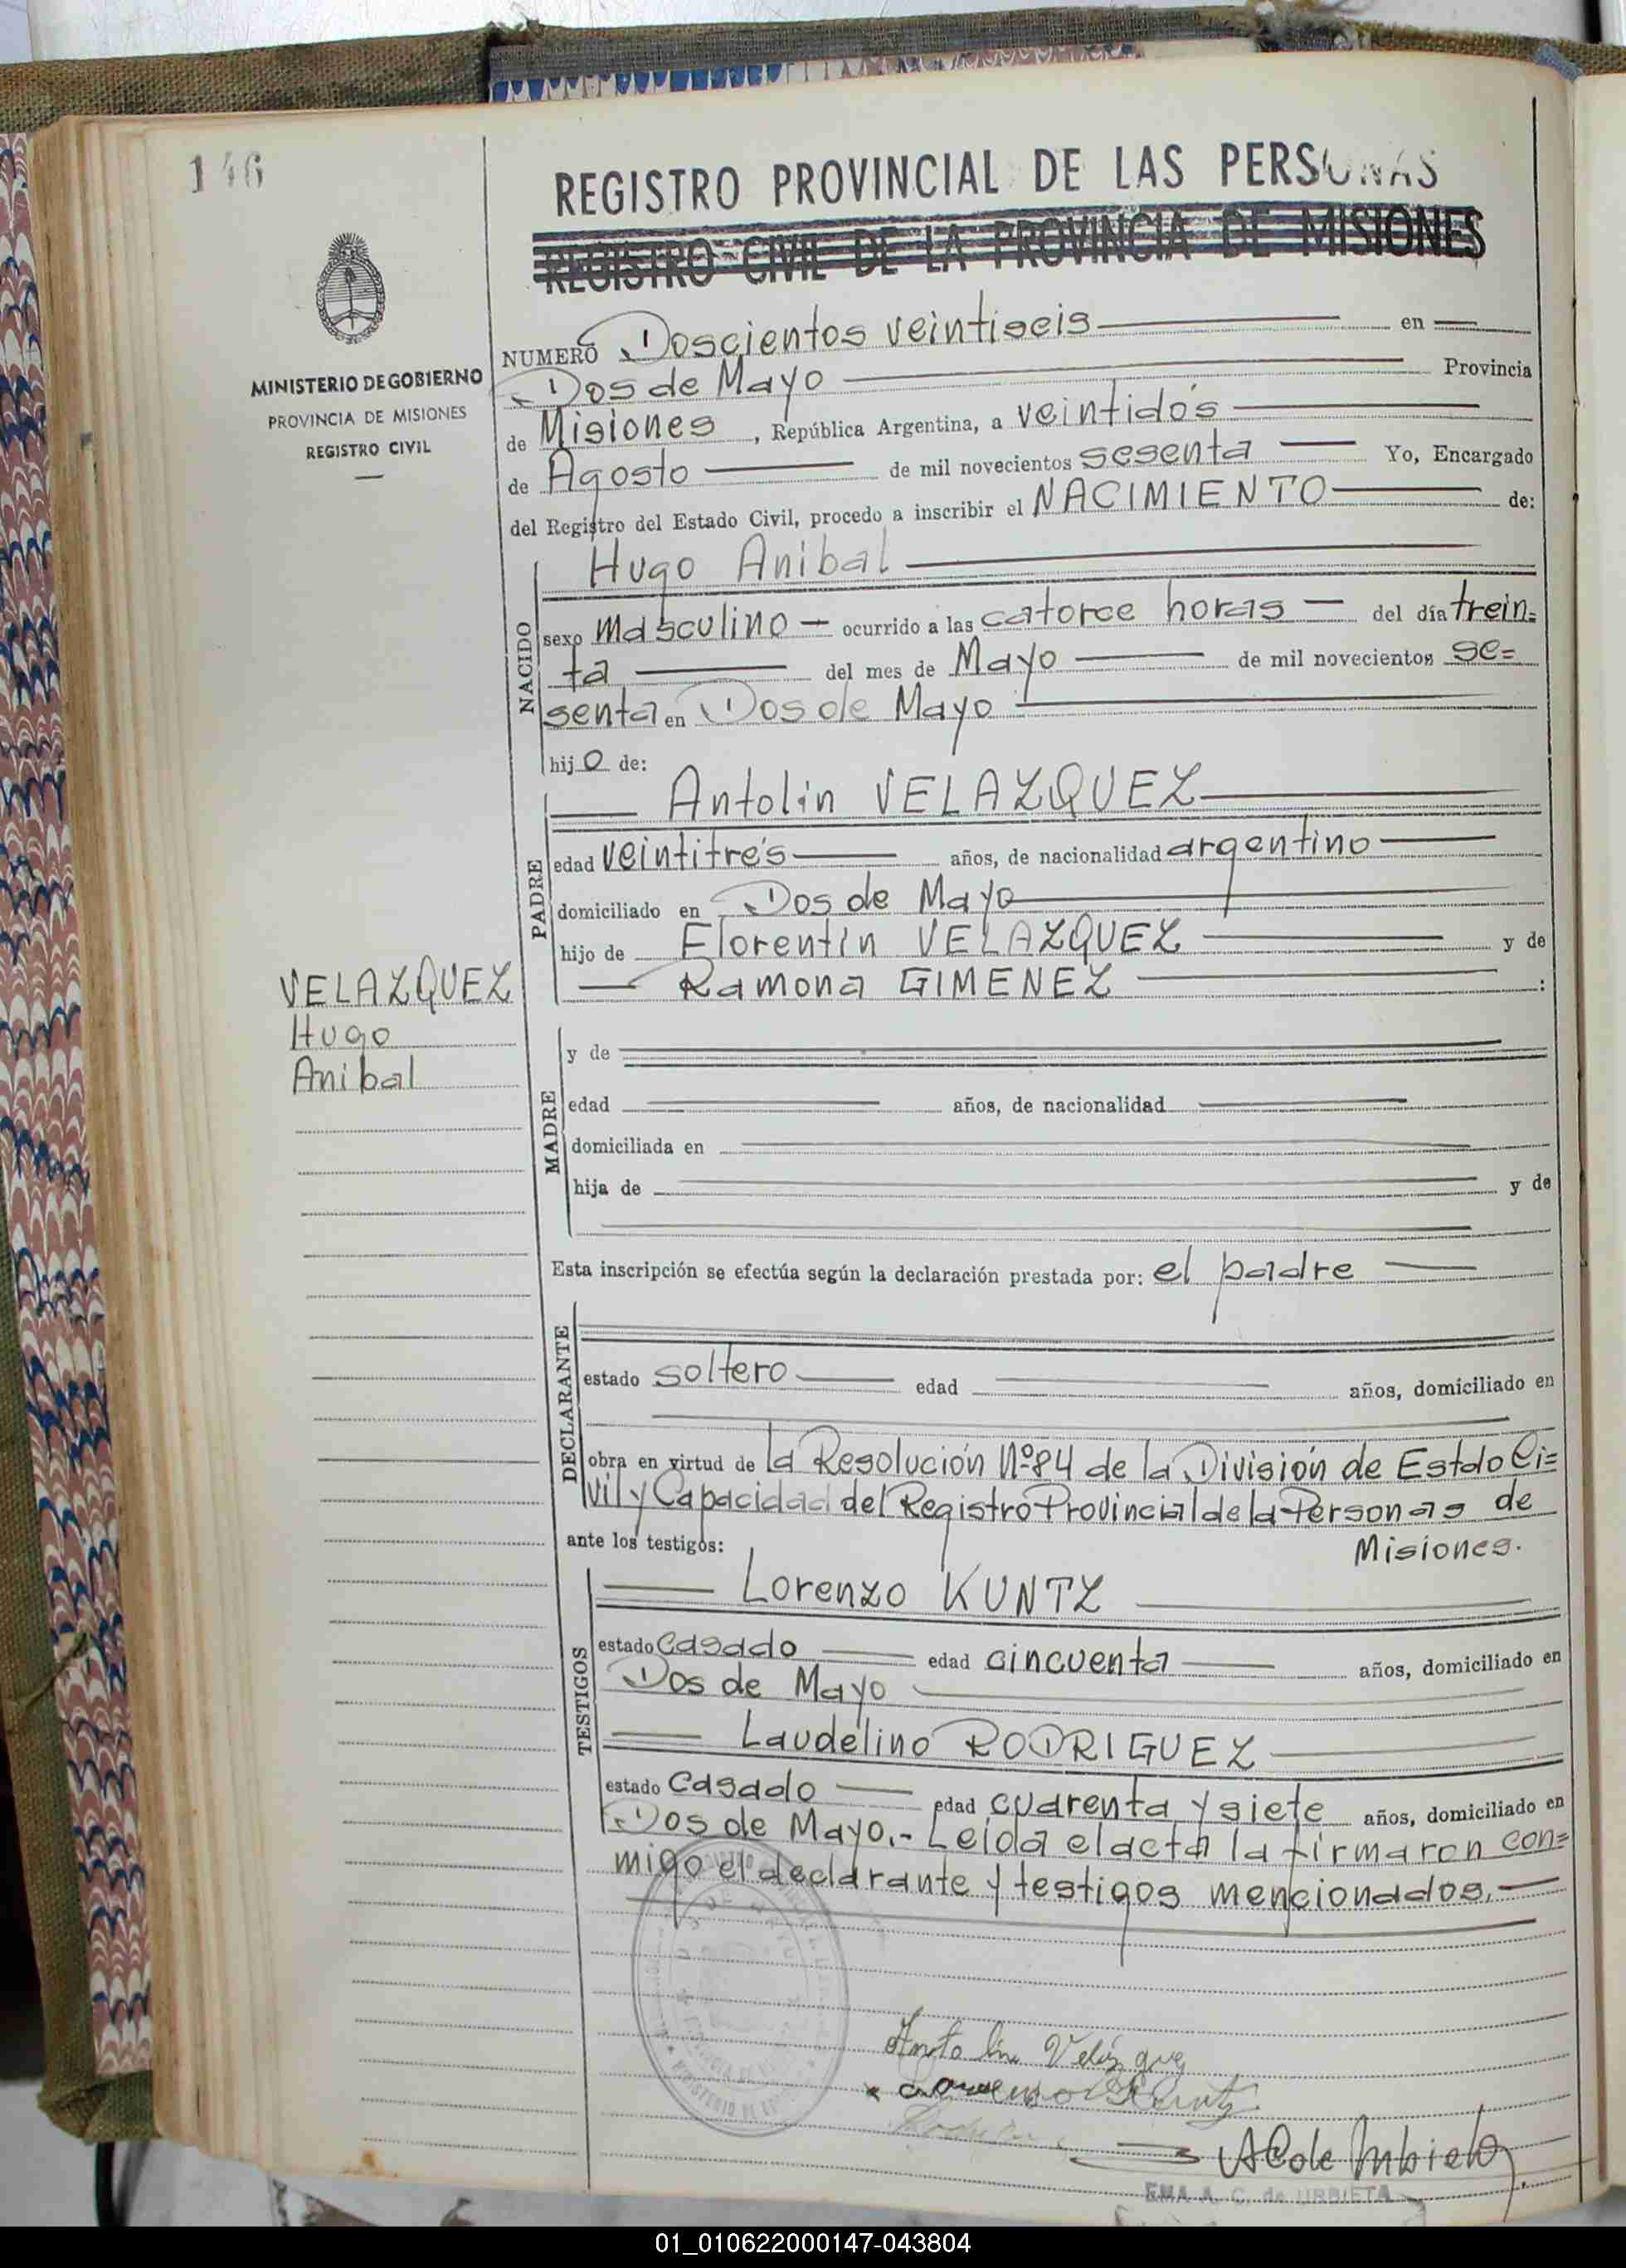 146
REGISTRO PROVINCIAL DE LAS PERSONAS
REGISTRO CIVIL DE LA PROVINCIA DE MISIONES
MINISTERIO DE GOBIERNO
PROVINCIA DE MISIONES
REGISTRO CIVIL
NUMERO Doscientos veintiseis en
Dos de Mayo Provincia
de Misiones, República Argentina, a veintidós
de Agosto de mil novecientos sesenta Yo, Encargado
del Registro del Estado Civil, procedo a inscribir el NACIMIENTO de:
NACIDO
Hugo Anibal
sexo masculino ocurrido a las catorce horas del día trein=
ta del mes de Mayo de mil novecientos se=
senta en Dos de Mayo
hijo de:
PADRE
Antolin VELAZQUEZ
edad veintitrés años, de nacionalidad argentino
domiciliado en Dos de Mayo
hijo de Florentin VELAZQUEZ y de
Ramona GIMENEZ :
VELAZQUEZ
Hugo
Anibal
MADRE
y de
edad años, de nacionalidad
domiciliada en
hija de y de
Esta inscripción se efectúa según la declaración prestada por: el padre
DECLARANTE
estado soltero edad años, domiciliado en
obra en virtud de la Resolución Nº 84 de la División de Estdo Ci=
vil y Capacidad del Registro Provincial de la Personas de
Misiones.
ante los testigos:
TESTIGOS
Lorenzo KUNTZ
estado casado edad cincuenta años, domiciliado en
Dos de Mayo
Laudelino RODRIGUEZ
estado casado edad cuarenta y siete años, domiciliado en
Dos de Mayo.- Leida el acta la firmaron con=
migo el declarante y testigos mencionados.
Antolin Velázque
Lorenzo Kuntz
EMA A. C. de URBIETA
01_010622000147-043804